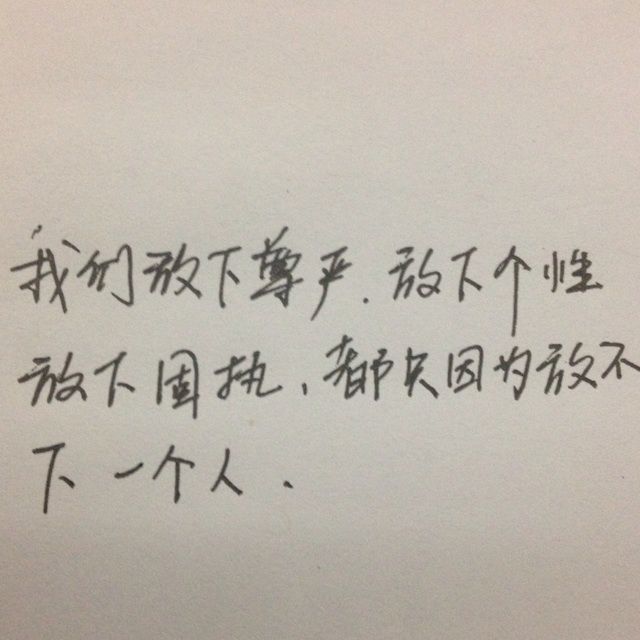 我们放下尊严.放下个性
放下固执、都只因为放不
下一个人.